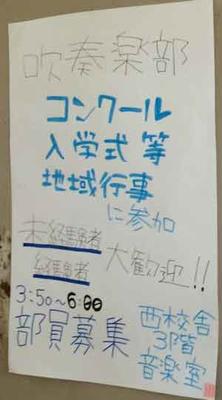 吹奏楽部
コンクール
入学式 等
地域行事
に参加
未経験者
経験者
大歓迎!!
3:50~6:00
部員募集
西校舎
3階
音楽室